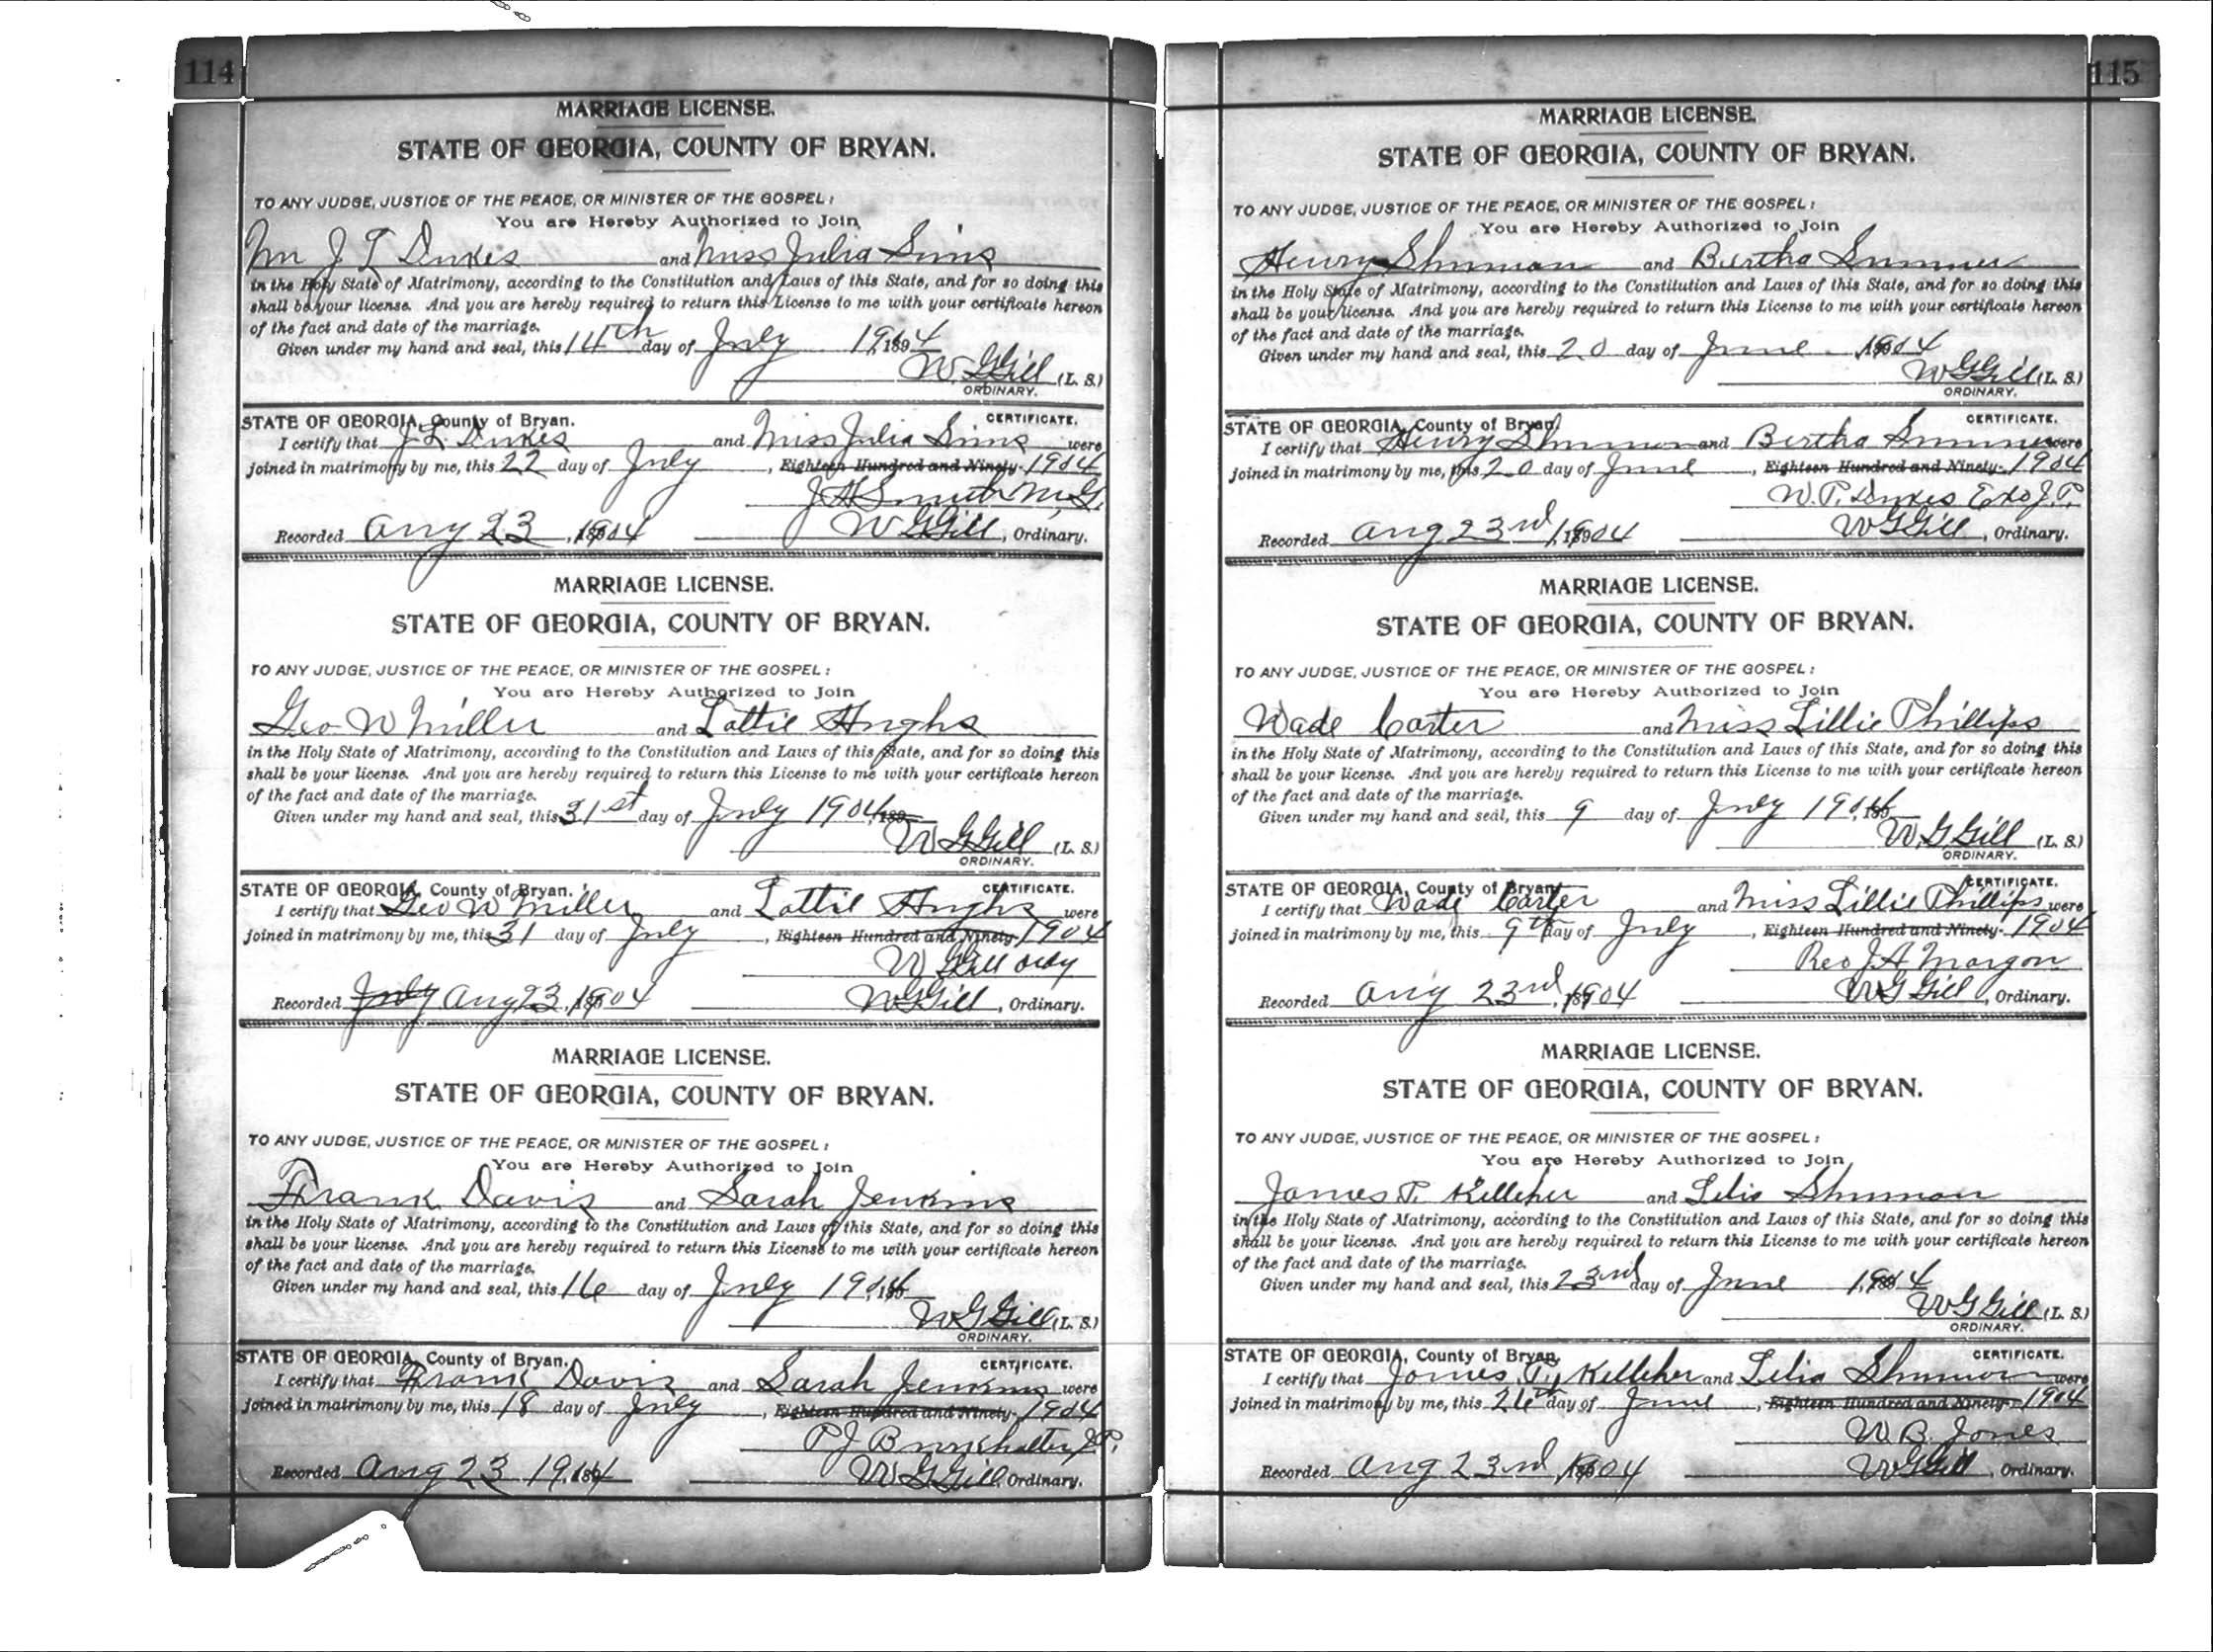 114
MARRIAGE LICENSE.
STATE OF GEORGIA, COUNTY OF BRYAN.
TO ANY JUDGE, JUSTICE OF THE PEACE, OR MINISTER OF THE GOSPEL:
You are Hereby Authorized to Join
Mr J L Dukes and Miss Julia Sims
in the Holy State of Matrimony, according to the Constitution and Laws of this State, and for so doing this
shall be your license. And you are hereby required to return this License to me with your certificate hereon
of the fact and date of the marriage.
Given under my hand and seal, this 14th day of July 1904
W G Gill (L. S.)
ORDINARY.
STATE OF GEORGIA, County of Bryan. CERTIFICATE.
I certify that J. L. Dukes and Miss Julia Sims were
joined in matrimony by me, this 22 day of July, Eighteen Hundred and Ninety- 1904
J H Smith M. G.
Recorded Aug 23, 1904 W G Gill, Ordinary.
MARRIAGE LICENSE.
STATE OF GEORGIA, COUNTY OF BRYAN.
TO ANY JUDGE, JUSTICE OF THE PEACE, OR MINISTER OF THE GOSPEL:
You are Hereby Authorized to Join
Geo W Miller and Lottie Hughs
in the Holy State of Matrimony, according to the Constitution and Laws of this State, and for so doing this
shall be your license. And you are hereby required to return this License to me with your certificate hereon
of the fact and date of the marriage.
Given under my hand and seal, this 31st day of July 1904 189
W G Gill (L. S.)
ORDINARY.
STATE OF GEORGIA, County of Bryan. CERTIFICATE.
I certify that Geo W Miller and Lottie Hughs were
joined in matrimony by me, this 31 day of July, Eighteen Hundred and Ninety- 1904
W G Gill Ordy
Recorded July Aug 23, 1904 W G Gill, Ordinary.
MARRIAGE LICENSE.
STATE OF GEORGIA, COUNTY OF BRYAN.
TO ANY JUDGE, JUSTICE OF THE PEACE, OR MINISTER OF THE GOSPEL:
You are Hereby Authorized to Join
Frank Davis and Sarah Jenkins
in the Holy State of Matrimony, according to the Constitution and Laws of this State, and for so doing this
shall be your license. And you are hereby required to return this License to me with your certificate hereon
of the fact and date of the marriage.
Given under my hand and seal, this 16 day of July 1904
W G Gill (L. S.)
ORDINARY.
STATE OF GEORGIA, County of Bryan. CERTIFICATE.
I certify that Frank Davis and Sarah Jenkins were
joined in matrimony by me, this 18 day of July, Eighteen Hundred and Ninety- 1904
P J Burkhalter J.P.
Recorded Aug 23 1904 W G Gill, Ordinary.
115
MARRIAGE LICENSE.
STATE OF GEORGIA, COUNTY OF BRYAN.
TO ANY JUDGE, JUSTICE OF THE PEACE, OR MINISTER OF THE GOSPEL:
You are Hereby Authorized to Join
Henry Shuman and Bertha Sumner
in the Holy State of Matrimony, according to the Constitution and Laws of this State, and for so doing this
shall be your license. And you are hereby required to return this License to me with your certificate hereon
of the fact and date of the marriage.
Given under my hand and seal, this 20 day of June 1904
W G Gill (L. S.)
ORDINARY.
STATE OF GEORGIA, County of Bryan. CERTIFICATE.
I certify that Henry Shuman and Bertha Sumner were
joined in matrimony by me, this 20 day of June, Eighteen Hundred and Ninety- 1904
W. P. Dukes J. P.
Recorded Aug 23rd, 1904 W G Gill, Ordinary.
MARRIAGE LICENSE.
STATE OF GEORGIA, COUNTY OF BRYAN.
TO ANY JUDGE, JUSTICE OF THE PEACE, OR MINISTER OF THE GOSPEL:
You are Hereby Authorized to Join
Wade Carter and Miss Lillie Phillips
in the Holy State of Matrimony, according to the Constitution and Laws of this State, and for so doing this
shall be your license. And you are hereby required to return this License to me with your certificate hereon
of the fact and date of the marriage.
Given under my hand and seal, this 9 day of July 1904
W. G. Gill (L. S.)
ORDINARY.
STATE OF GEORGIA, County of Bryan. CERTIFICATE.
I certify that Wade Carter and Miss Lillie Phillips were
joined in matrimony by me, this 9th day of July, Eighteen Hundred and Ninety- 1904
Rev J. A. Morgan
Recorded Aug 23rd, 1904 W G Gill, Ordinary.
MARRIAGE LICENSE.
STATE OF GEORGIA, COUNTY OF BRYAN.
TO ANY JUDGE, JUSTICE OF THE PEACE, OR MINISTER OF THE GOSPEL:
You are Hereby Authorized to Join
James P. Kelleher and Lelia Shuman
in the Holy State of Matrimony, according to the Constitution and Laws of this State, and for so doing this
shall be your license. And you are hereby required to return this License to me with your certificate hereon
of the fact and date of the marriage.
Given under my hand and seal, this 23rd day of June 1904
W G Gill (L. S.)
ORDINARY.
STATE OF GEORGIA, County of Bryan. CERTIFICATE.
I certify that James P. Kelleher and Lelia Shuman were
joined in matrimony by me, this 26th day of June, Eighteen Hundred and Ninety- 1904
W. B. Jones
Recorded Aug 23rd 1904 W G Gill, Ordinary.